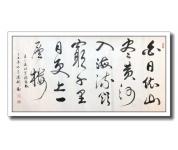 白日依山
盡黄河
入海流欲
窮千里
目更上一
層樓